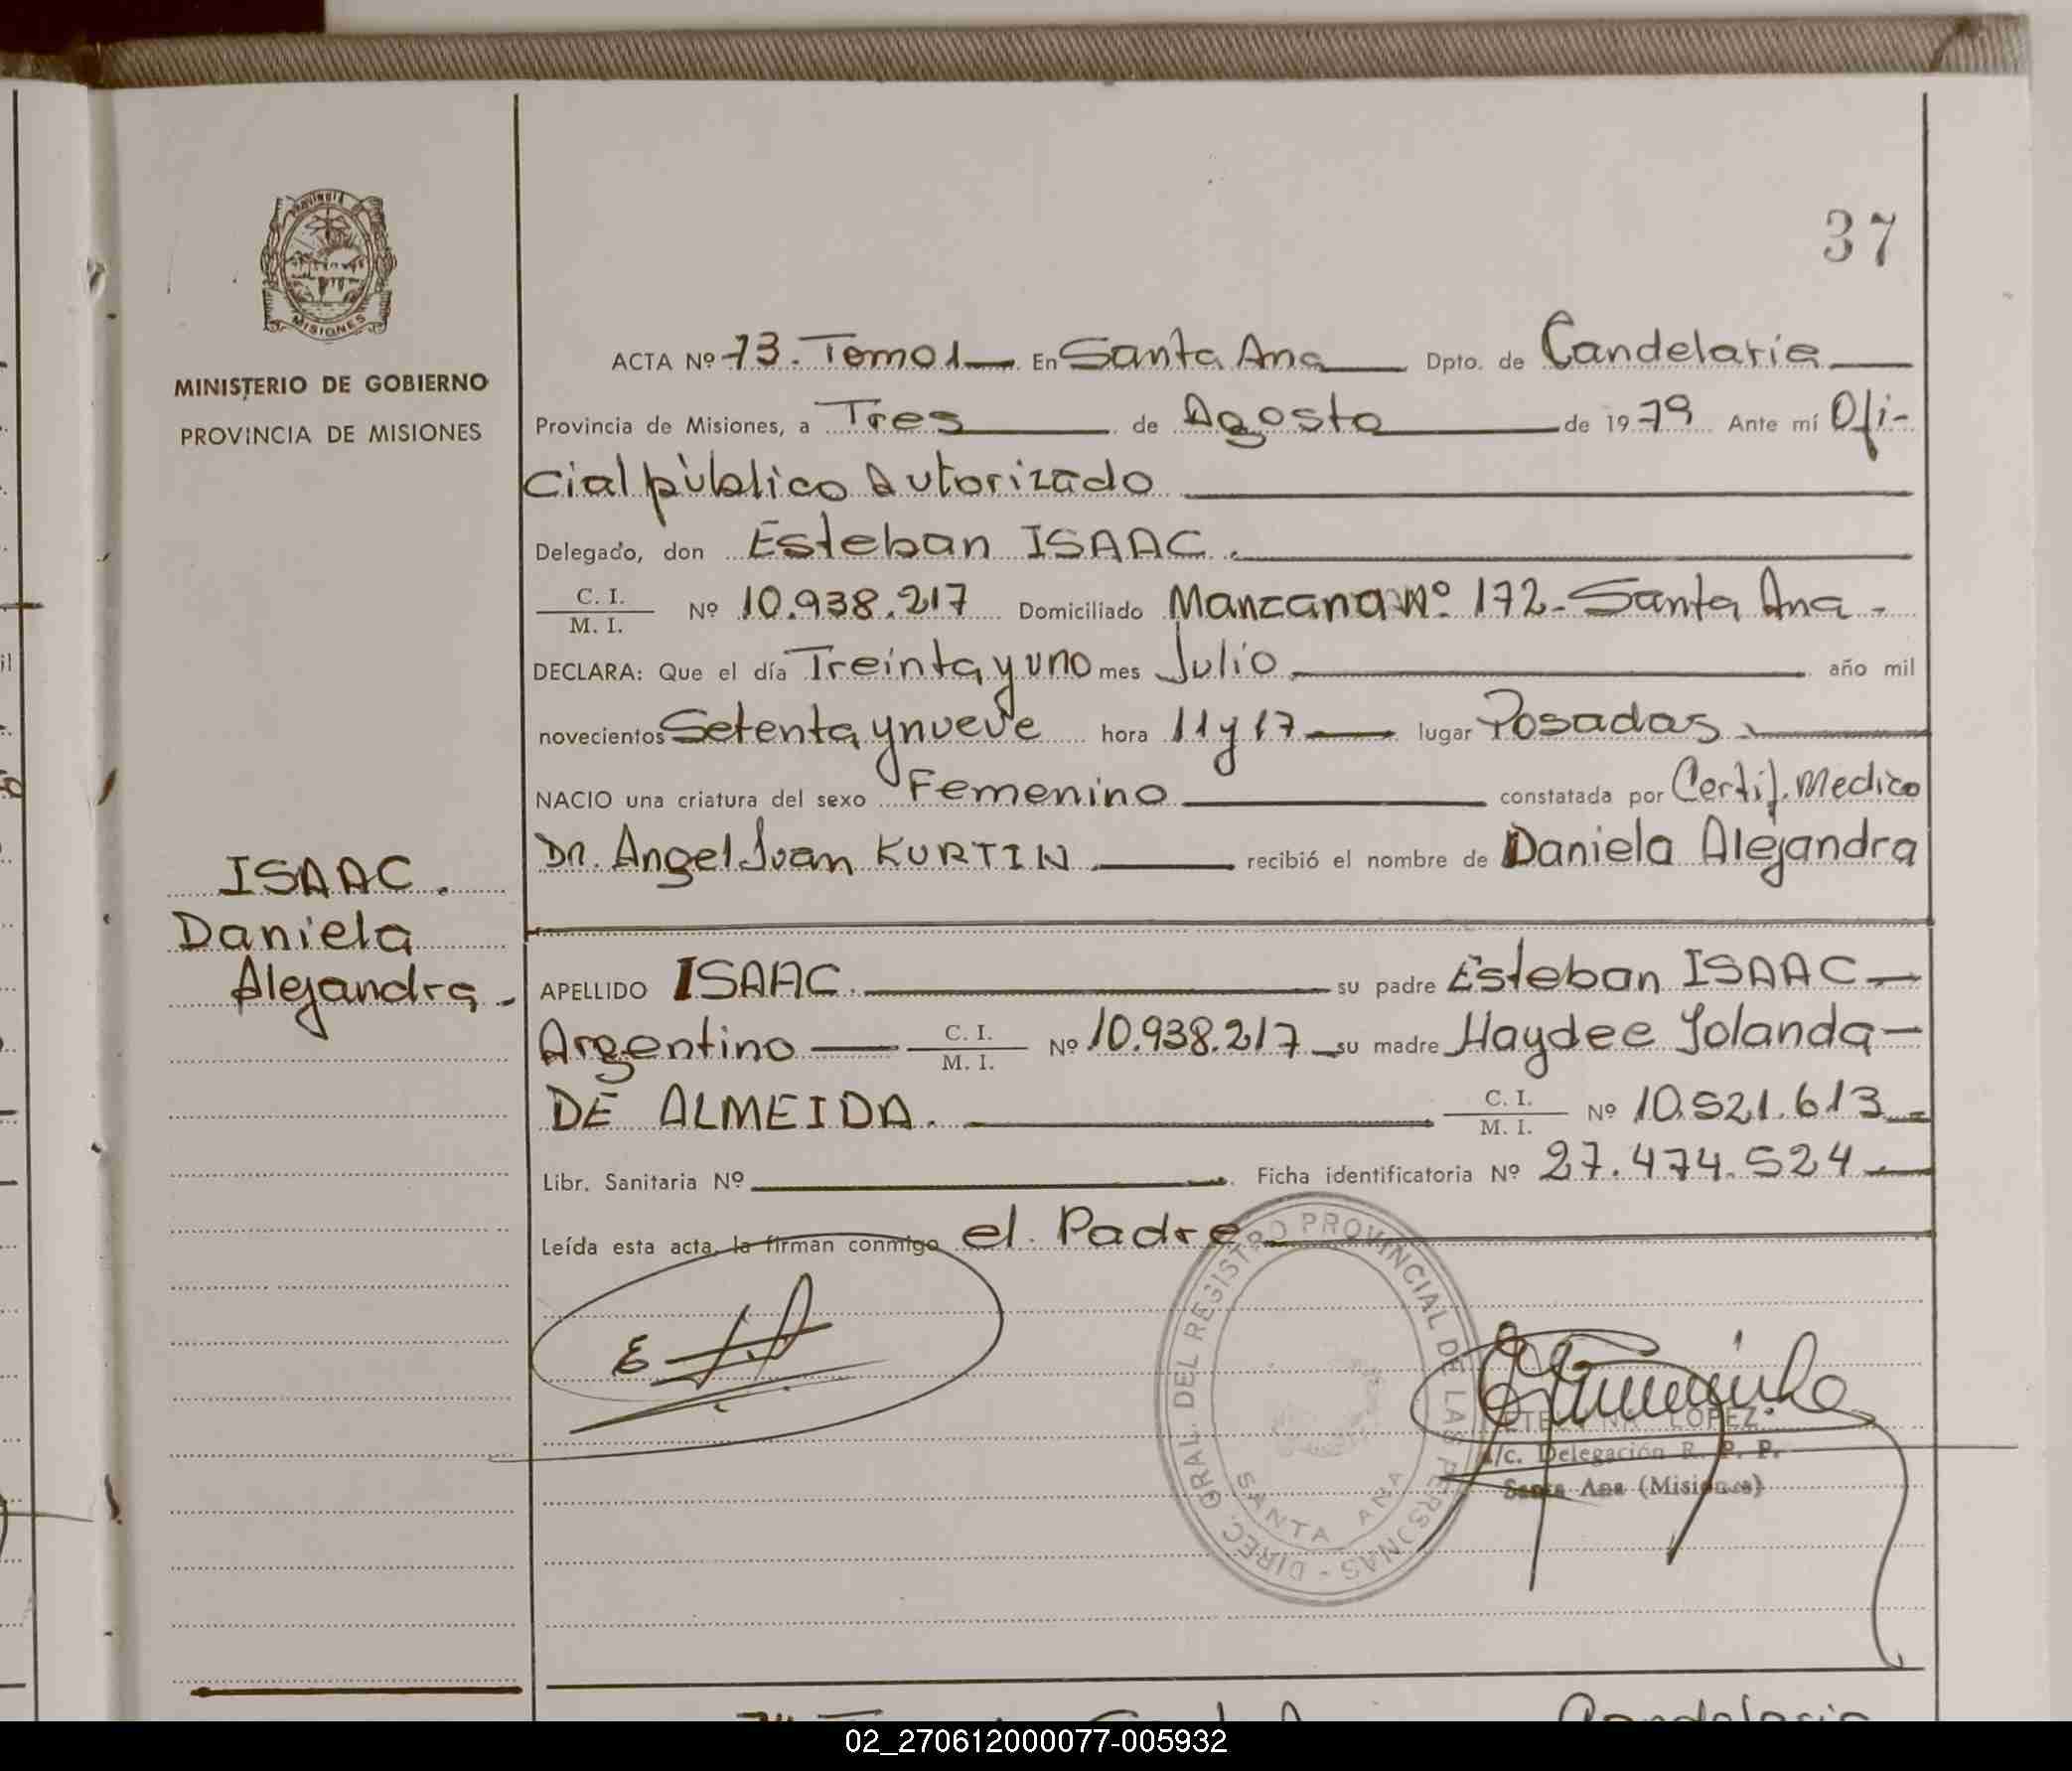 37
PROVINCIA DE MISIONES
MINISTERIO DE GOBIERNO
PROVINCIA DE MISIONES
ACTA Nº 73. Tomo 1 En Santa Ana Dpto. de Candelaria
Provincia de Misiones, a Tres de Agosto de 1979 Ante mí Ofi-
cial público Autorizado
Delegado, don Esteban ISAAC.
C. I.
M. I. Nº 10.938.217 Domiciliado Manzana Nº 172- Santa Ana -
DECLARA: Que el día Treinta y uno mes Julio año mil
novecientos Setenta y nueve hora 11 y 17 lugar Posadas
NACIO una criatura del sexo Femenino constatada por Certif. Medico
Dr. Angel Juan KURTIN recibió el nombre de Daniela Alejandra
ISAAC.
Daniela
Alejandra -
APELLIDO ISAAC. su padre Esteban ISAAC
Argentino C. I.
M. I. Nº 10.938.217 su madre Haydee Yolanda
DE ALMEIDA. C. I.
M. I. Nº 10.521.613
Libr. Sanitaria Nº Ficha identificatoria Nº 27.474.524
Leída esta acta, la firman conmigo el Padre
DIREC. GRAL. DEL REGISTRO PROVINCIAL DE LAS PERSONAS -
SANTA ANA
LOPEZ
a/c. Delegación R. P. P.
Santa Ana (Misiones)
02_270612000077-005932